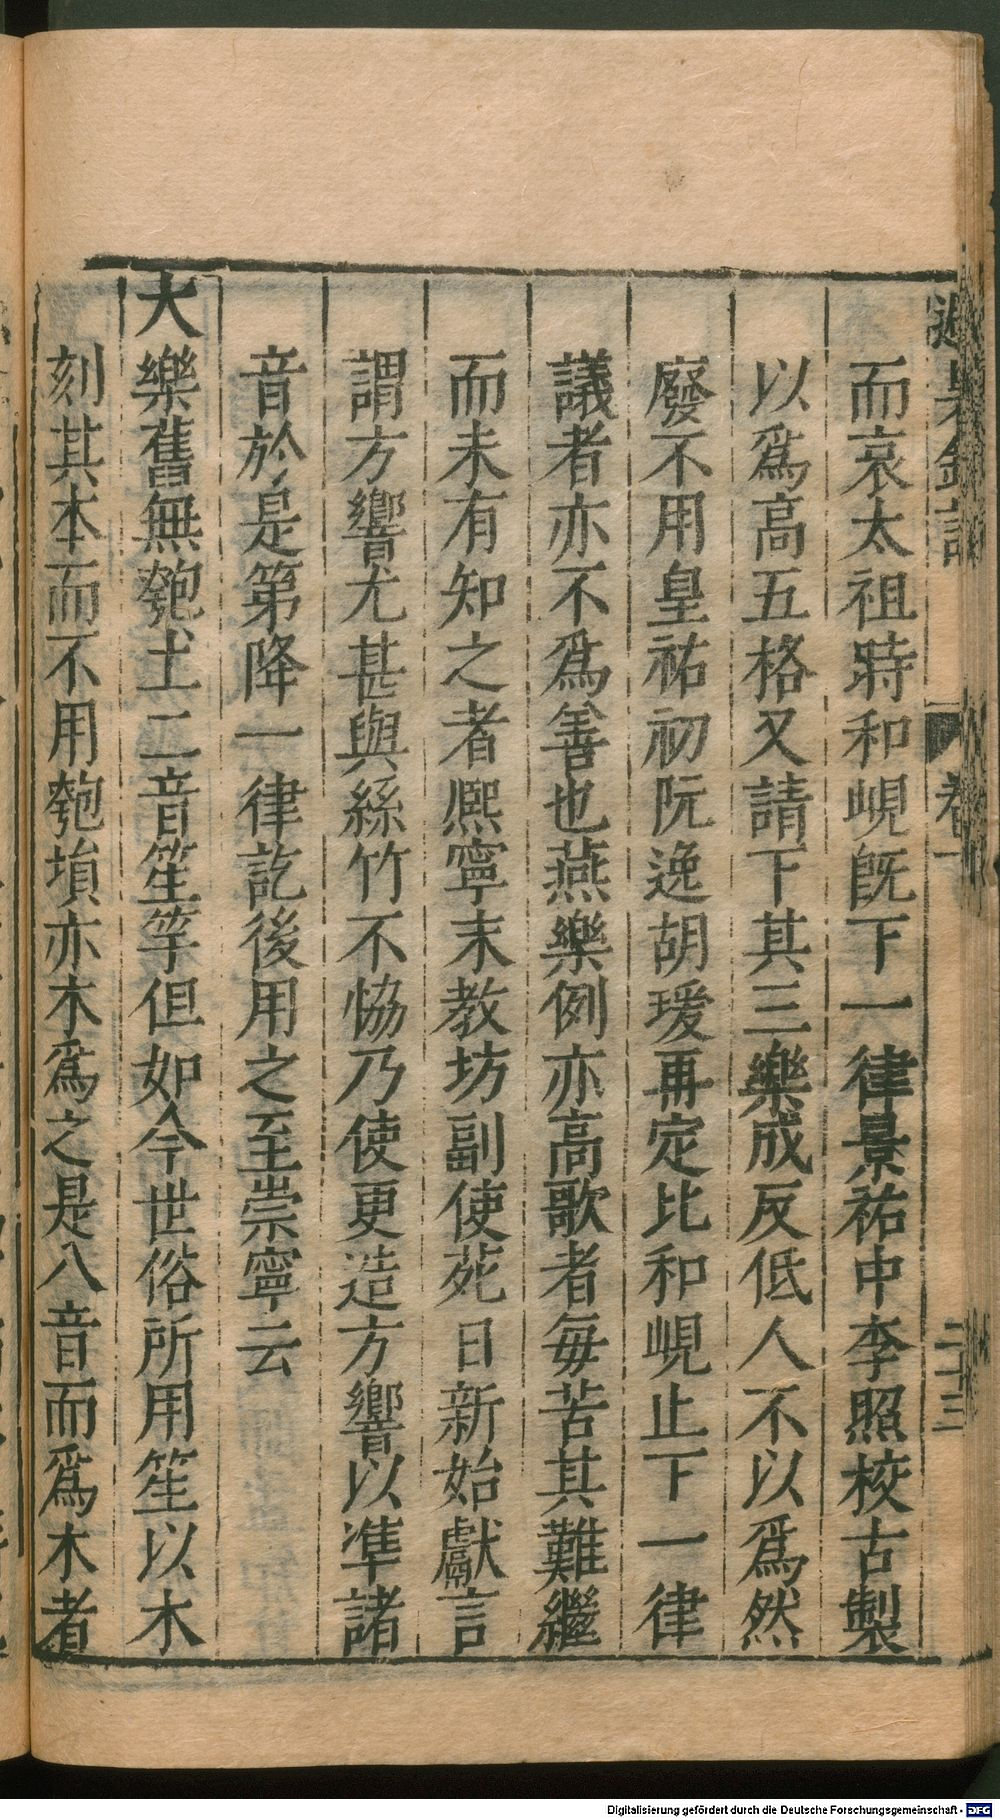 而哀太祖時和峴旣下一律景祐中李照校古製
以爲高五格又請下其三樂成反低人不以爲然
廢不用皇祐初阮逸胡瑗再定比和峴止下一律
議者亦不爲善也燕樂例亦高歌者每苦其難繼
而未有知之者熈寧末教坊副使苑日新始獻言
謂方響尤甚與絲竹不恊乃使更造方響以準諸
音於是第降一律訖後用之至崇寧云
大樂舊無匏土二音笙竽但如今世俗所用笙以木
刻其本而不用匏塤亦木爲之是八音而爲木者
卷一
二十三
Digitalisierung gefördert durch die Deutsche Forschungsgemeinschaft - DFG